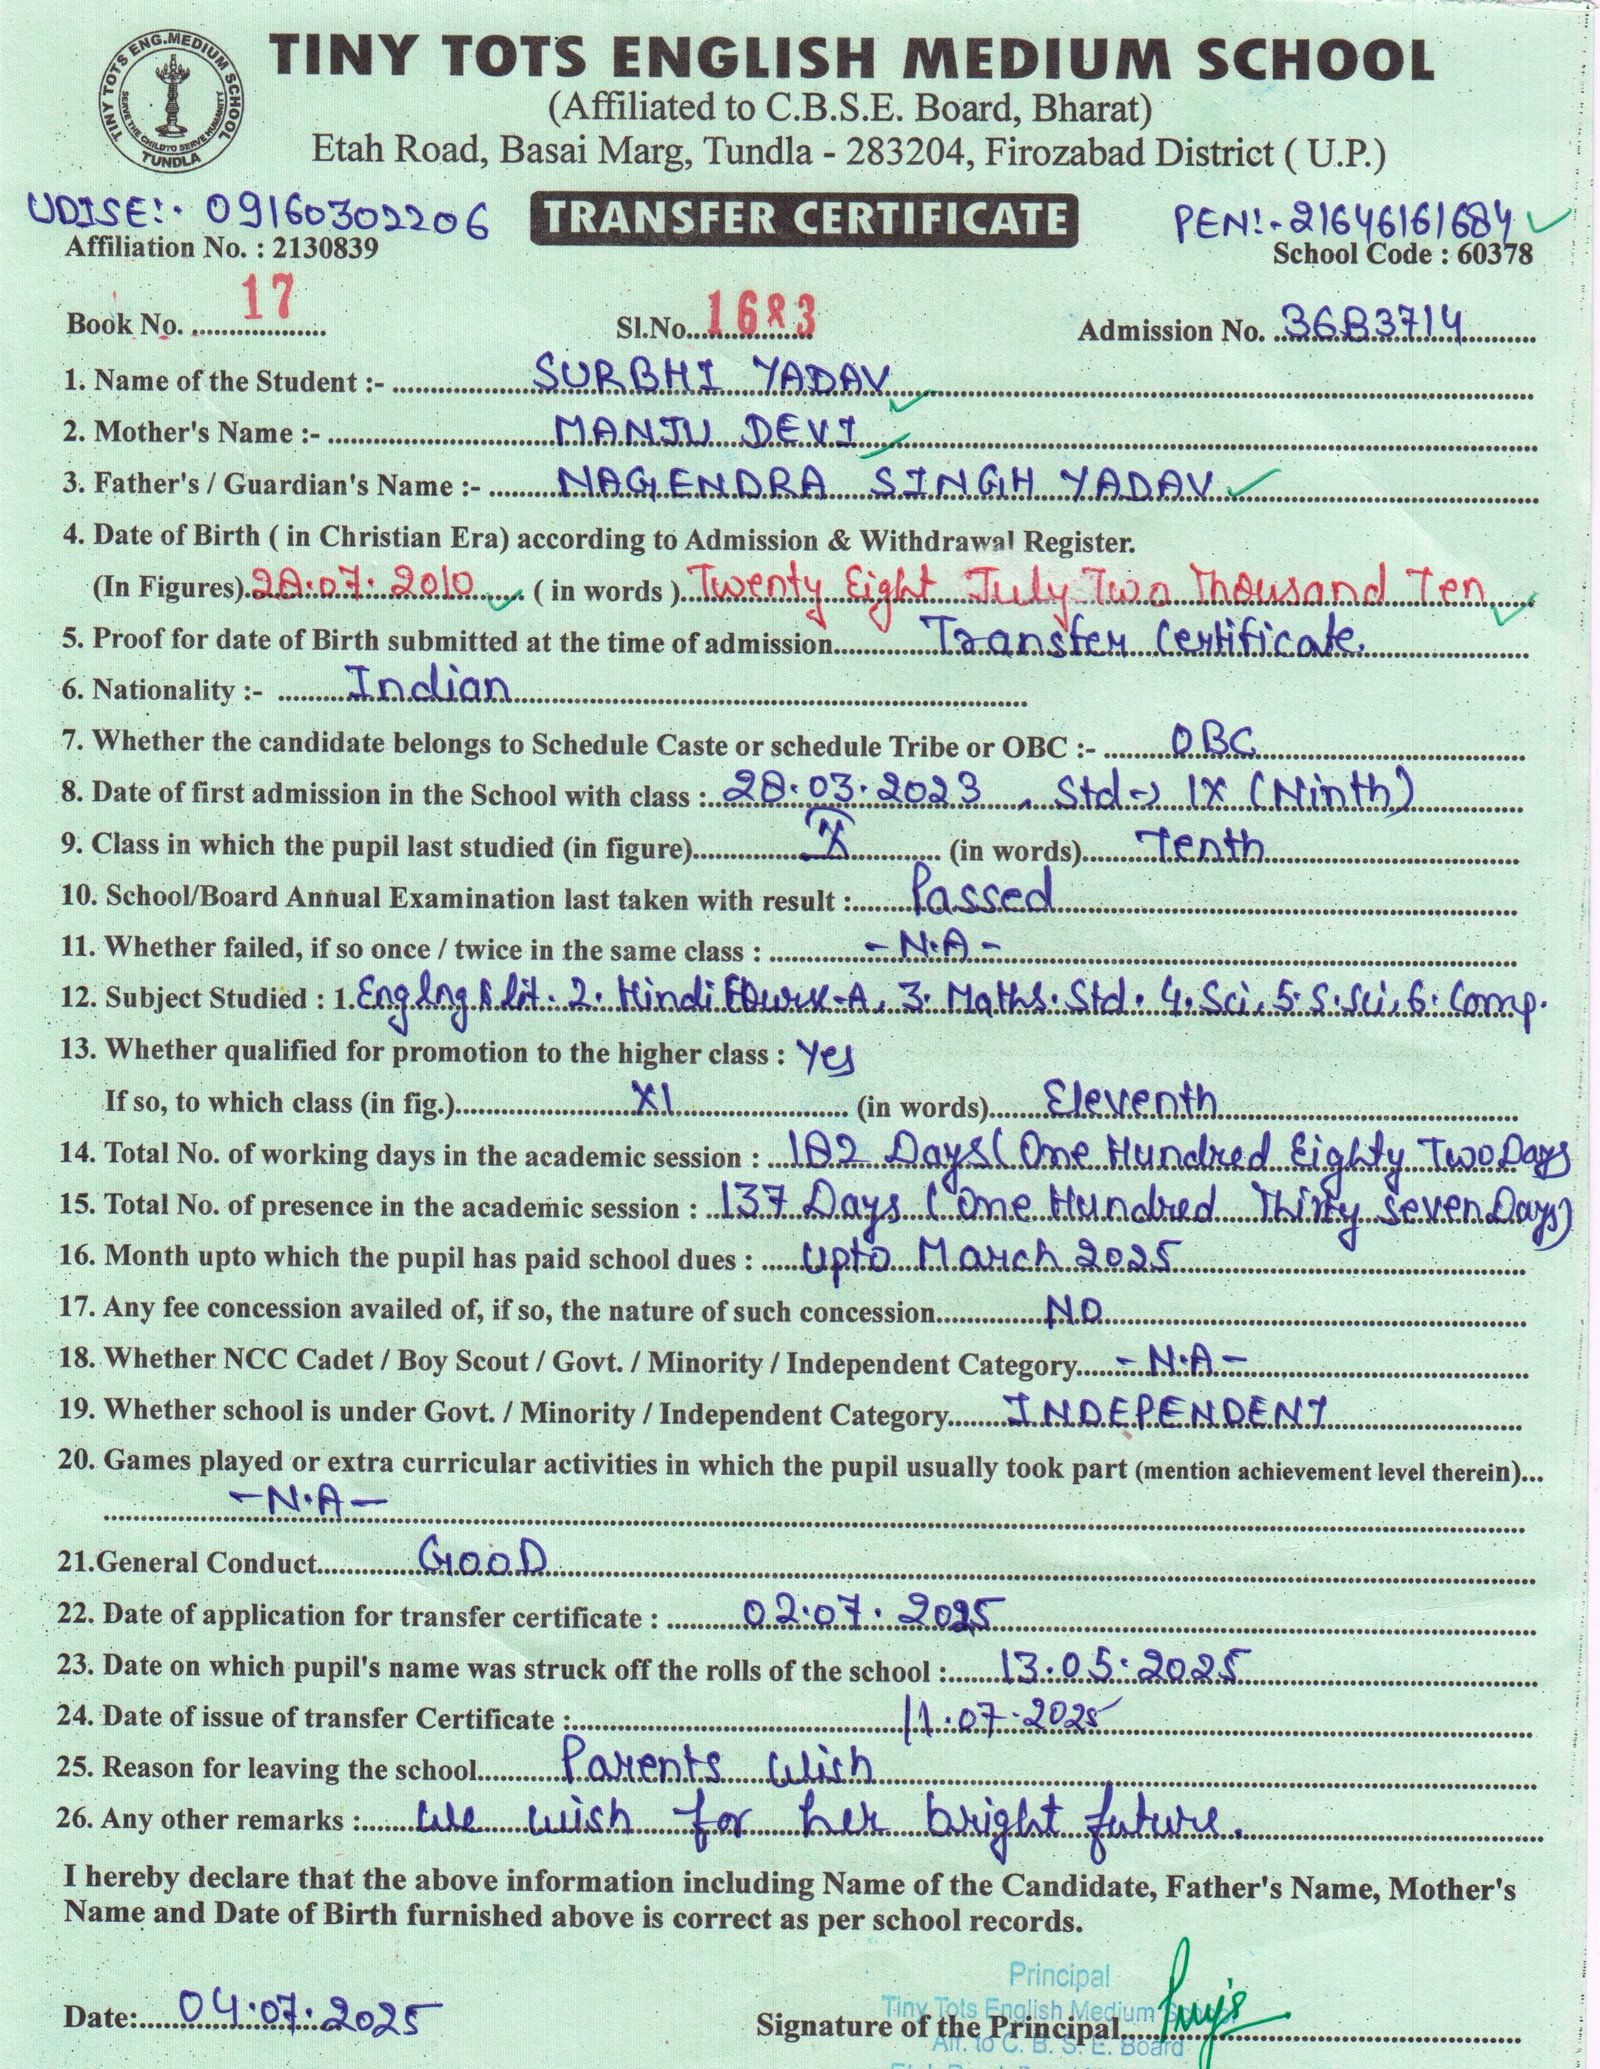 TINY TOTS ENG.MEDIUM SCHOOL
SERVE THE CHILD TO SERVE HUMANITY
TUNDLA
TINY TOTS ENGLISH MEDIUM SCHOOL
(Affiliated to C.B.S.E. Board, Bharat)
Etah Road, Basai Marg, Tundla - 283204, Firozabad District ( U.P.)
UDISE:- 09160302206 TRANSFER CERTIFICATE PEN:- 21646161684
Affiliation No. : 2130839 School Code : 60378
Book No. 17 Sl.No. 1683 Admission No. 36B3714
1. Name of the Student :- SURBHI YADAV
2. Mother's Name :- MANJU DEVI
3. Father's / Guardian's Name :- NAGENDRA SINGH YADAV
4. Date of Birth ( in Christian Era) according to Admission & Withdrawal Register.
(In Figures) 28.07.2010 ( in words ) Twenty Eight July Two Thousand Ten
5. Proof for date of Birth submitted at the time of admission Transfer Certificate.
6. Nationality :- Indian
7. Whether the candidate belongs to Schedule Caste or schedule Tribe or OBC :- OBC
8. Date of first admission in the School with class : 28.03.2023, Std-> IX (Ninth)
9. Class in which the pupil last studied (in figure) X (in words) Tenth
10. School/Board Annual Examination last taken with result : Passed
11. Whether failed, if so once / twice in the same class : -N.A-
12. Subject Studied : 1. Eng lng & lit. 2. Hindi Course-A, 3. Maths. Std. 4. Sci, 5. S.Sci, 6. Comp.
13. Whether qualified for promotion to the higher class : Yes
If so, to which class (in fig.) XI (in words) Eleventh
14. Total No. of working days in the academic session : 182 Days (One Hundred Eighty Two Days
15. Total No. of presence in the academic session : 137 Days (One Hundred Thirty Seven Days)
16. Month upto which the pupil has paid school dues : Upto March 2025
17. Any fee concession availed of, if so, the nature of such concession NO
18. Whether NCC Cadet / Boy Scout / Govt. / Minority / Independent Category -N.A-
19. Whether school is under Govt. / Minority / Independent Category INDEPENDENT
20. Games played or extra curricular activities in which the pupil usually took part (mention achievement level therein)...
-N.A-
21.General Conduct GOOD
22. Date of application for transfer certificate : 02.07.2025
23. Date on which pupil's name was struck off the rolls of the school : 13.05.2025
24. Date of issue of transfer Certificate : 11.07.2025
25. Reason for leaving the school Parents wish
26. Any other remarks : We wish for her bright future.
I hereby declare that the above information including Name of the Candidate, Father's Name, Mother's
Name and Date of Birth furnished above is correct as per school records.
Principal
Tiny Tots English Medium
Date: 04.07.2025 Signature of the Principal
Aff. to C. B. S. E. Board